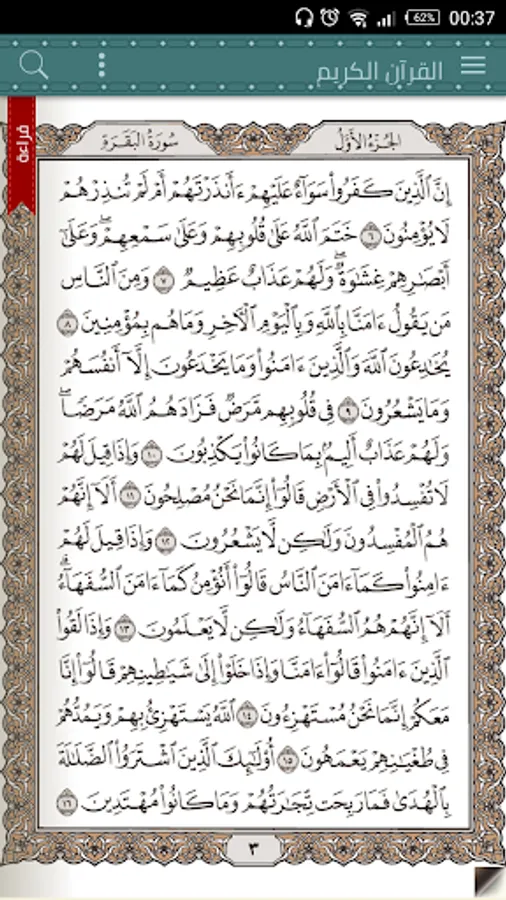 62% 00:37
القرآن الكريم
قراءة
الجُزْءُ الأَوَّلُ
سُورَةُ البَقَرَةِ
إِنَّ ٱلَّذِينَ كَفَرُوا۟ سَوَآءٌ عَلَيْهِمْ ءَأَنذَرْتَهُمْ أَمْ لَمْ تُنذِرْهُمْ
لَا يُؤْمِنُونَ ٦ خَتَمَ ٱللَّهُ عَلَىٰ قُلُوبِهِمْ وَعَلَىٰ سَمْعِهِمْ ۖ وَعَلَىٰٓ
أَبْصَـٰرِهِمْ غِشَـٰوَةٌ ۖ وَلَهُمْ عَذَابٌ عَظِيمٌ ٧ وَمِنَ ٱلنَّاسِ
مَن يَقُولُ ءَامَنَّا بِٱللَّهِ وَبِٱلْيَوْمِ ٱلْـَٔاخِرِ وَمَا هُم بِمُؤْمِنِينَ ٨
يُخَـٰدِعُونَ ٱللَّهَ وَٱلَّذِينَ ءَامَنُوا۟ وَمَا يَخْدَعُونَ إِلَّآ أَنفُسَهُمْ
وَمَا يَشْعُرُونَ ٩ فِى قُلُوبِهِم مَّرَضٌ فَزَادَهُمُ ٱللَّهُ مَرَضًا ۖ
وَلَهُمْ عَذَابٌ أَلِيمٌۢ بِمَا كَانُوا۟ يَكْذِبُونَ ١٠ وَإِذَا قِيلَ لَهُمْ
لَا تُفْسِدُوا۟ فِى ٱلْأَرْضِ قَالُوٓا۟ إِنَّمَا نَحْنُ مُصْلِحُونَ ١١ أَلَآ إِنَّهُمْ
هُمُ ٱلْمُفْسِدُونَ وَلَـٰكِن لَّا يَشْعُرُونَ ١٢ وَإِذَا قِيلَ لَهُمْ
ءَامِنُوا۟ كَمَآ ءَامَنَ ٱلنَّاسُ قَالُوٓا۟ أَنُؤْمِنُ كَمَآ ءَامَنَ ٱلسُّفَهَآءُ ۗ
أَلَآ إِنَّهُمْ هُمُ ٱلسُّفَهَآءُ وَلَـٰكِن لَّا يَعْلَمُونَ ١٣ وَإِذَا لَقُوا۟
ٱلَّذِينَ ءَامَنُوا۟ قَالُوٓا۟ ءَامَنَّا وَإِذَا خَلَوْا۟ إِلَىٰ شَيَـٰطِينِهِمْ قَالُوٓا۟ إِنَّا
مَعَكُمْ إِنَّمَا نَحْنُ مُسْتَهْزِءُونَ ١٤ ٱللَّهُ يَسْتَهْزِئُ بِهِمْ وَيَمُدُّهُمْ
فِى طُغْيَـٰنِهِمْ يَعْمَهُونَ ١٥ أُو۟لَـٰٓئِكَ ٱلَّذِينَ ٱشْتَرَوُا۟ ٱلضَّلَـٰلَةَ
بِٱلْهُدَىٰ فَمَا رَبِحَت تِّجَـٰرَتُهُمْ وَمَا كَانُوا۟ مُهْتَدِينَ ١٦
٣